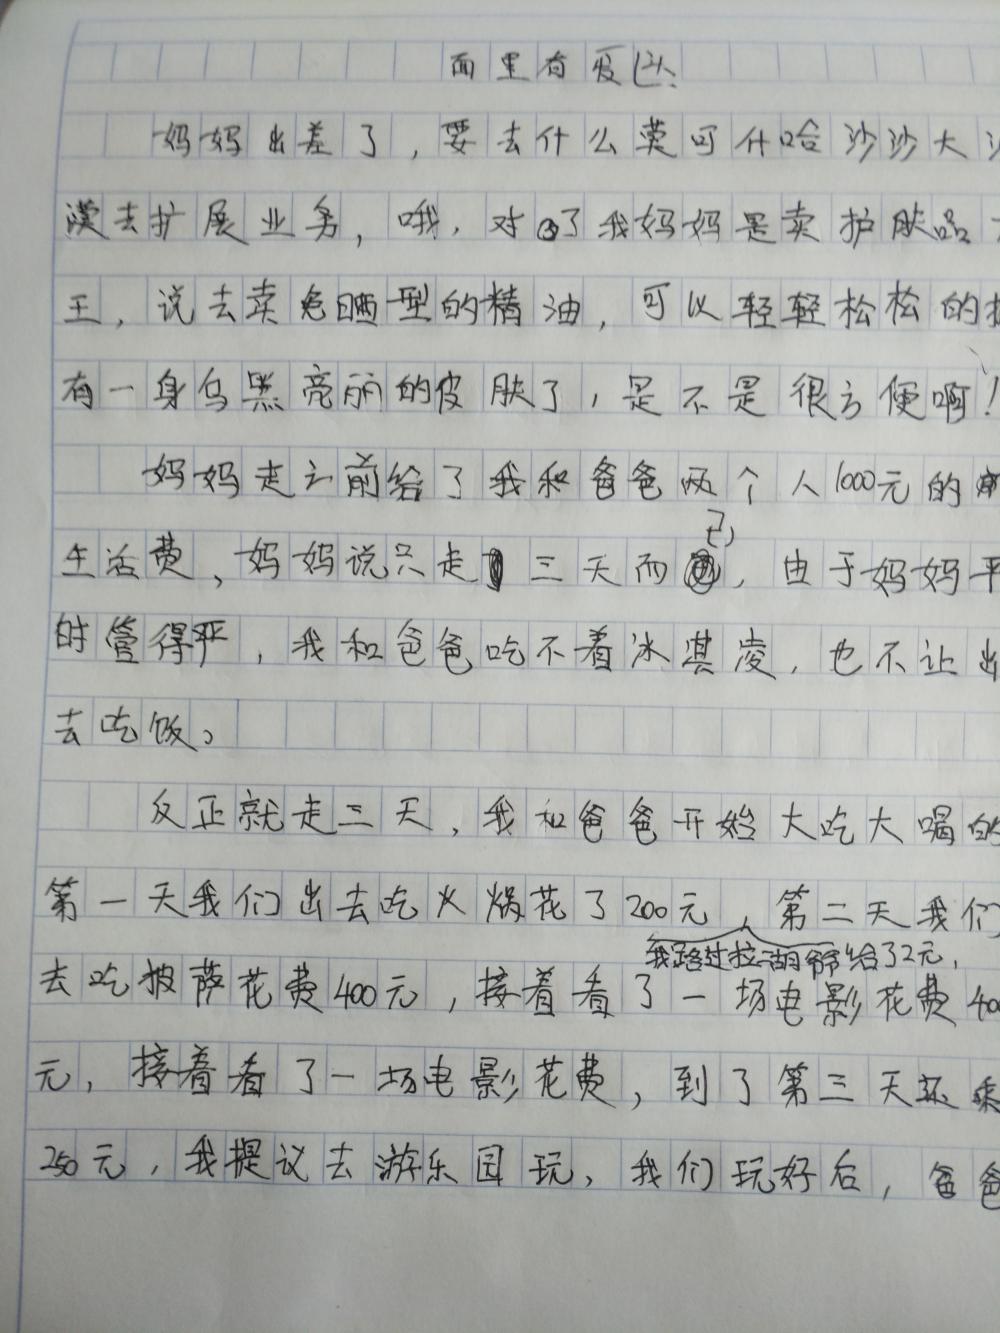 面里有爱心
妈妈出差了，要去什么莫可什哈沙沙大
漠去扩展业务，哦，对了我妈妈是卖护肤品
王，说去卖免晒型的精油，可以轻轻松松的
有一身乌黑亮丽的皮肤了，是不是很方便啊！
妈妈走之前给了我和爸爸两个人1000元的
生活费，妈妈说只走三天而已，由于妈妈平
时管得严，我和爸爸吃不着冰淇凌，也不让出
去吃饭。
反正就走三天，我和爸爸开始大吃大喝的
第一天我们出去吃火煱花了200元，第二天我们
我路过拉二胡爷爷给了2元，
去吃披萨花费400元，接着看了一场电影花费400
元，接着看了一场电影花费，到了第三天还乘
250元，我提议去游乐园玩，我们玩好后，爸爸